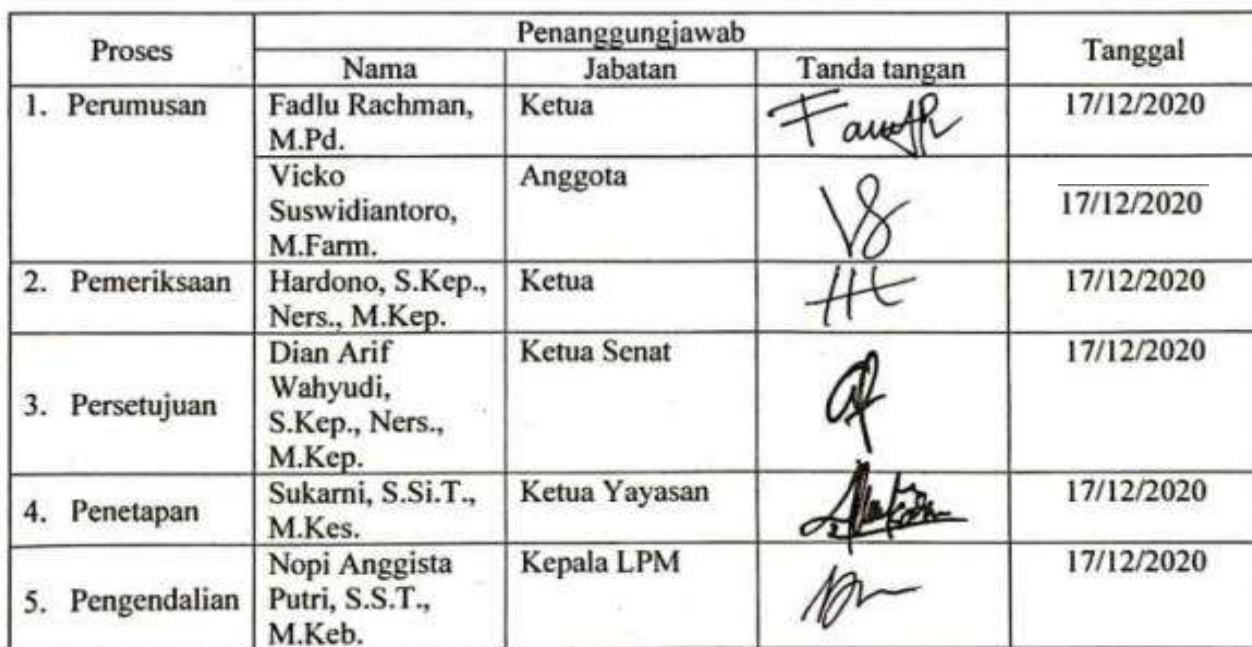 Proses
Penanggungjawab
Tanggal
Nama
Jabatan
Tanda tangan
1. Perumusan
Fadlu Rachman,
M.Pd.
Ketua
17/12/2020
Vicko
Suswidiantoro,
M.Farm.
Anggota
17/12/2020
2. Pemeriksaan
Hardono, S.Kep.,
Ners., M.Kep.
Ketua
17/12/2020
3. Persetujuan
Dian Arif
Wahyudi,
S.Kep., Ners.,
M.Kep.
Ketua Senat
17/12/2020
4. Penetapan
Sukarni, S.Si.T.,
M.Kes.
Ketua Yayasan
17/12/2020
5. Pengendalian
Nopi Anggista
Putri, S.S.T.,
M.Keb.
Kepala LPM
17/12/2020